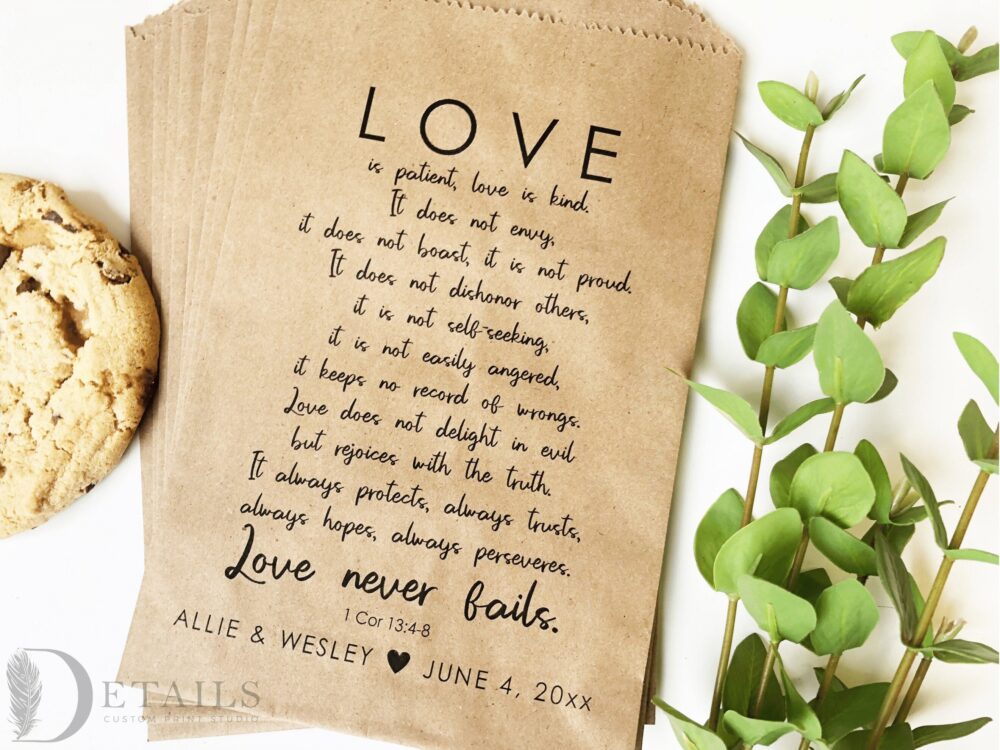 LOVE
is patient, love is kind.
It does not envy,
it does not boast, it is not proud.
It does not dishonor others,
it is not self-seeking,
it is not easily angered,
it keeps no record of wrongs.
Love does not delight in evil
but rejoices with the truth.
It always protects, always trusts,
always hopes, always perseveres.
Love never fails.
1 Cor 13:4-8
ALLIE & WESLEY ♥ JUNE 4, 20xx
DETAILS
CUSTOM PRINT STUDIO